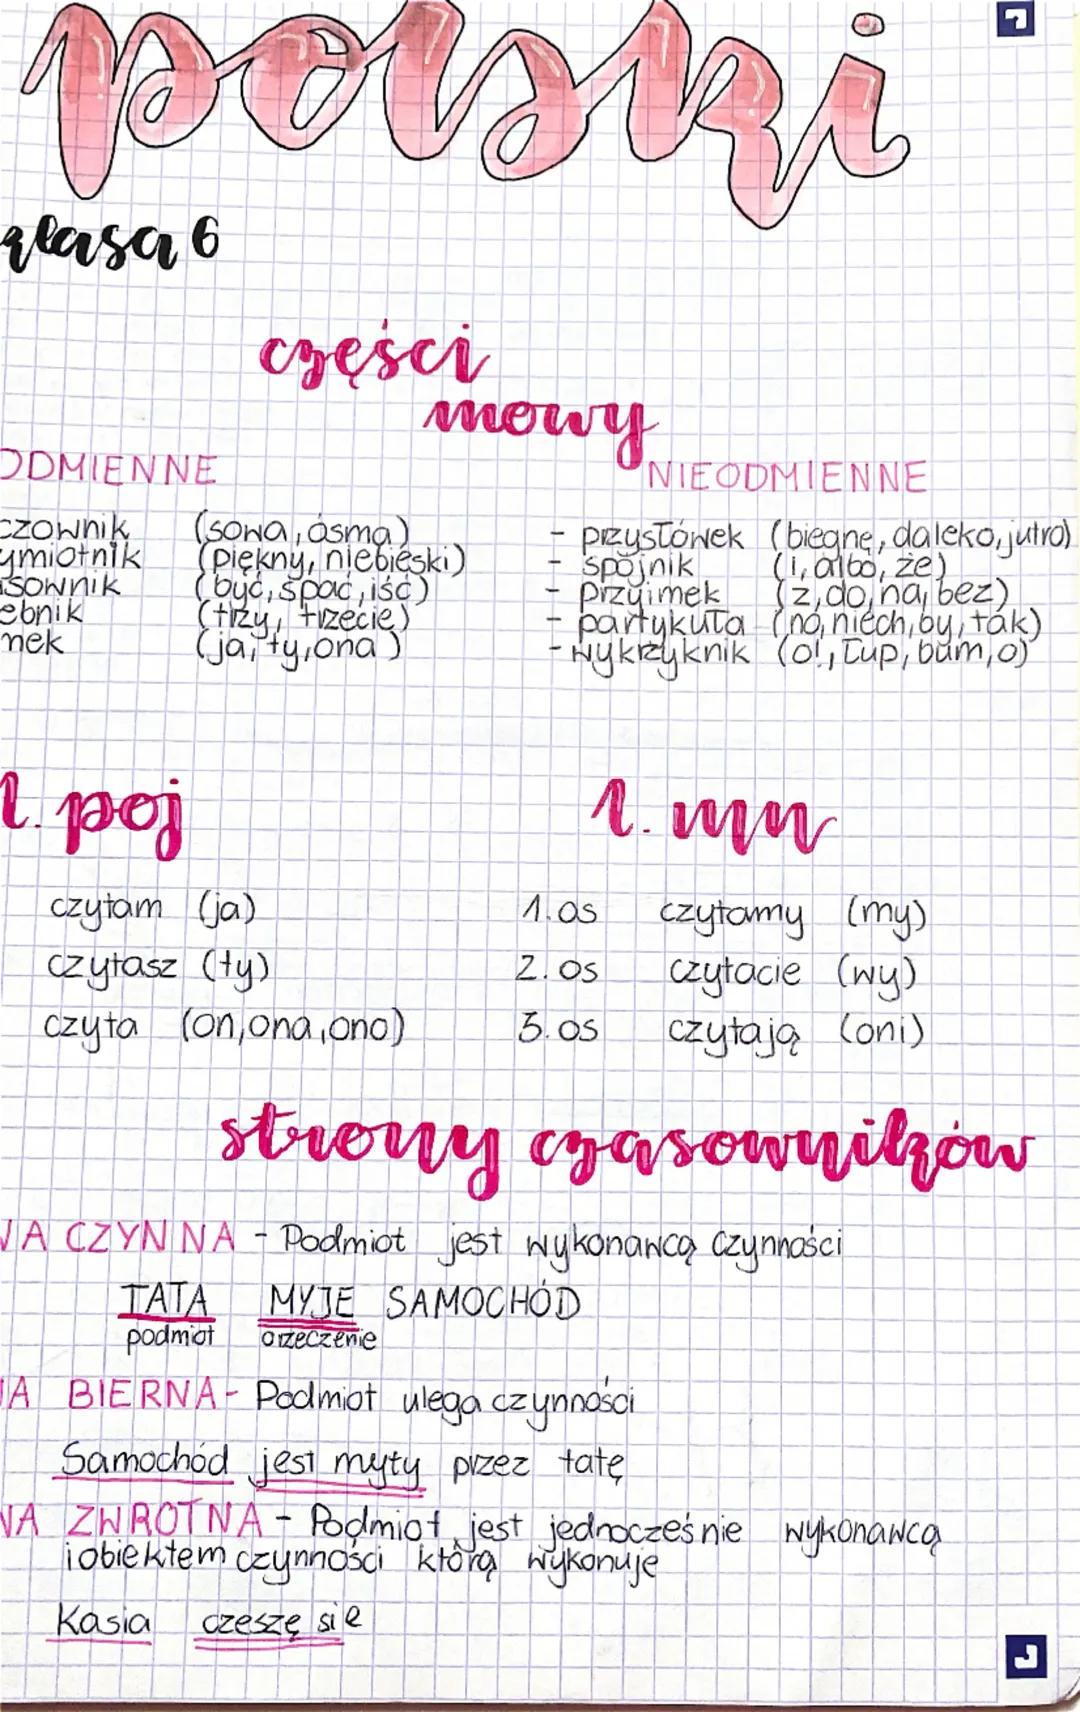 polski
klasa 6
części
mowy
ODMIENNE
NIEODMIENNE
czownik (sowa, ósma)
ymiotnik (piękny, niebieski)
sownik (być, spać, iść)
ebnik (trzy, trzecie)
mek (ja, ty, ona)
- przysłówek (biegnę, daleko, jutro)
- spójnik (i, albo, że)
- przyimek (z, do, na, bez)
- partykuła (no, niech, by, tak)
- wykrzyknik (o!, łup, bum, o)
l. poj
l. mn
czytam (ja) 1. os czytamy (my)
czytasz (ty) 2. os czytacie (wy)
czyta (on, ona, ono) 3. os czytają (oni)
strony czasowników
NA CZYNNA - Podmiot jest wykonawcą czynności
TATA MYJE SAMOCHÓD
podmiot orzeczenie
NA BIERNA - Podmiot ulega czynności
Samochód jest myty przez tatę
NA ZWROTNA - Podmiot jest jednocześnie wykonawcą
i obiektem czynności którą wykonuje
Kasia czeszę się